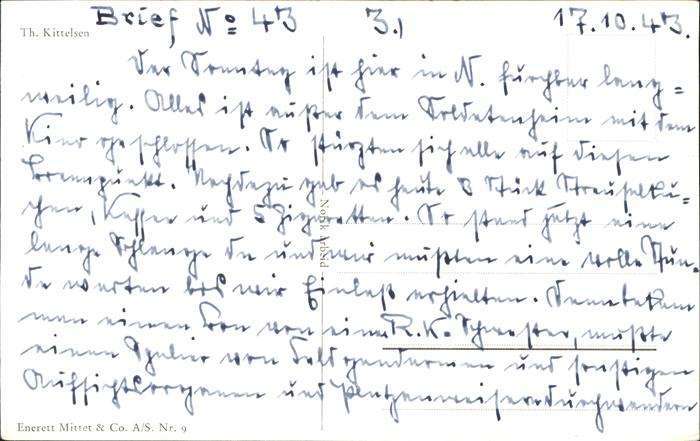 Th. Kittelsen
Brief Nº 43 3.) 17.10.43.
Der Sonntag ist hier in N. furchbar lang=
weilig. Alles ist außer dem Soldatenheim mit dem
Kino geschlossen. So stürzten sich alle auf diesen
Brennpunkt. Noch dazu gab es heute 3 Stück Streuselku=
chen, Kaffee und 5 Zigaretten. So stand jetzt eine
lange Schlange da und wir mußten eine volle Stun=
de warten bis wir Einlaß erhielten. Dann bekam
man einen Bon von einer R.K.-Schwester, mußte
einen Spalier von Feldgendarmen und sonstigen
Aufsichtsorganen und Platzanweisern durchwandern
Norsk Arbeid
Enerett Mittet & Co. A/S. Nr. 9